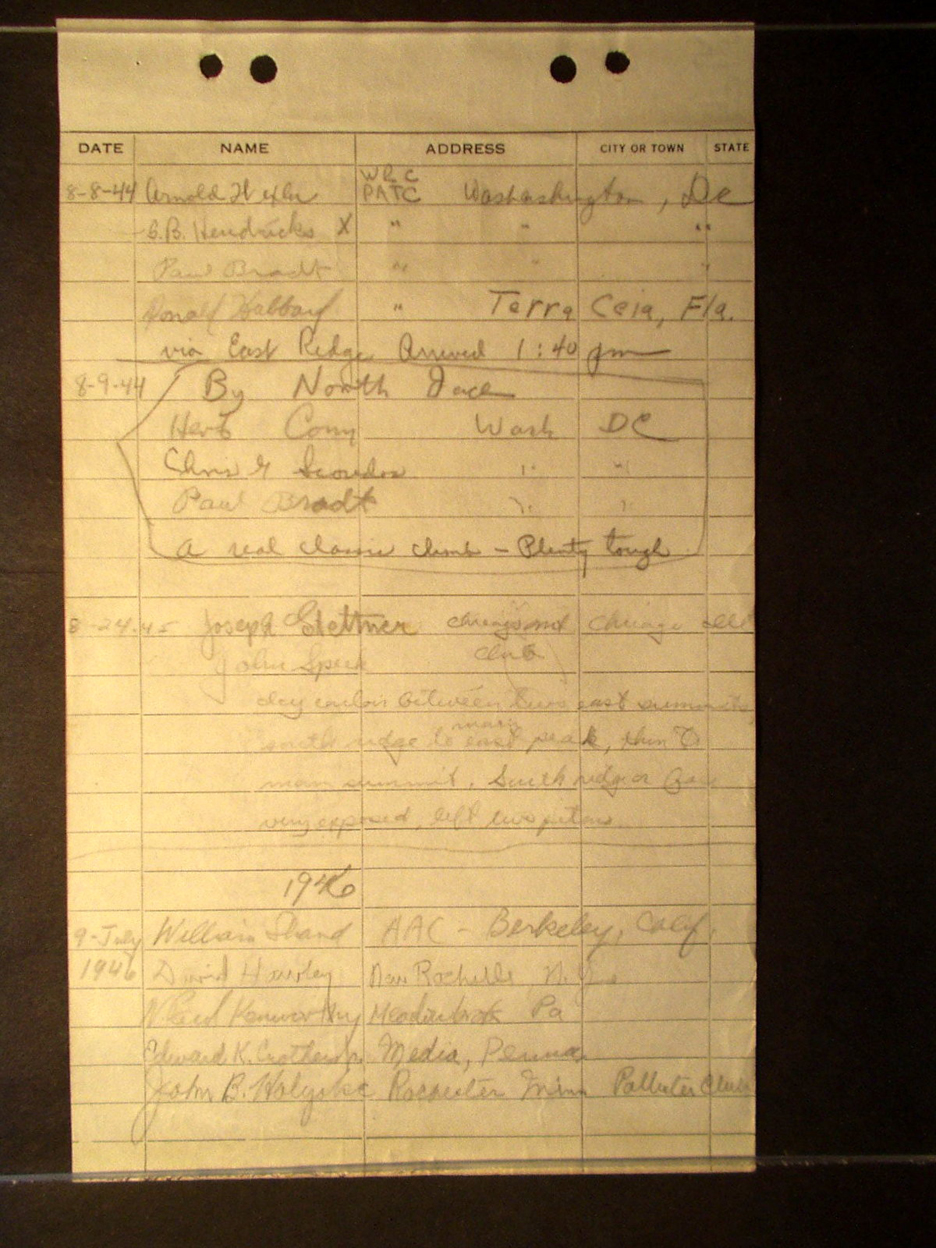 DATE NAME ADDRESS CITY OR TOWN STATE
WRC
8-8-44 Arnold Wexler PATC Washashington, DC
S.B. Hendricks X " " "
Paul Bradt " " "
Donald Hubbard " Terra Ceia, Fla.
via East Ridge Arrived 1:40 pm
8-9-44 By North Face
Herb Conn Wash DC
Chris Scoredos " "
Paul Bradt " "
A real classic climb - Plenty tough
8-24-45 Joseph Stettner Chicago Mt Chicago Ill
John Speck Club
day couloir between two east summits,
many
south ridge to east peak, then to
main summit. South ridge or face
very exposed, left two pitons
1946
9-July William Shand AAC - Berkeley, Calif.
1946 David Hawley New Rochelle N.Y.
N. Leed Kenworthy Meadowbrook Pa
Edward K. Crothers Jr. Media, Penna
John B. Holyoke Rochester Minn Polluter Club